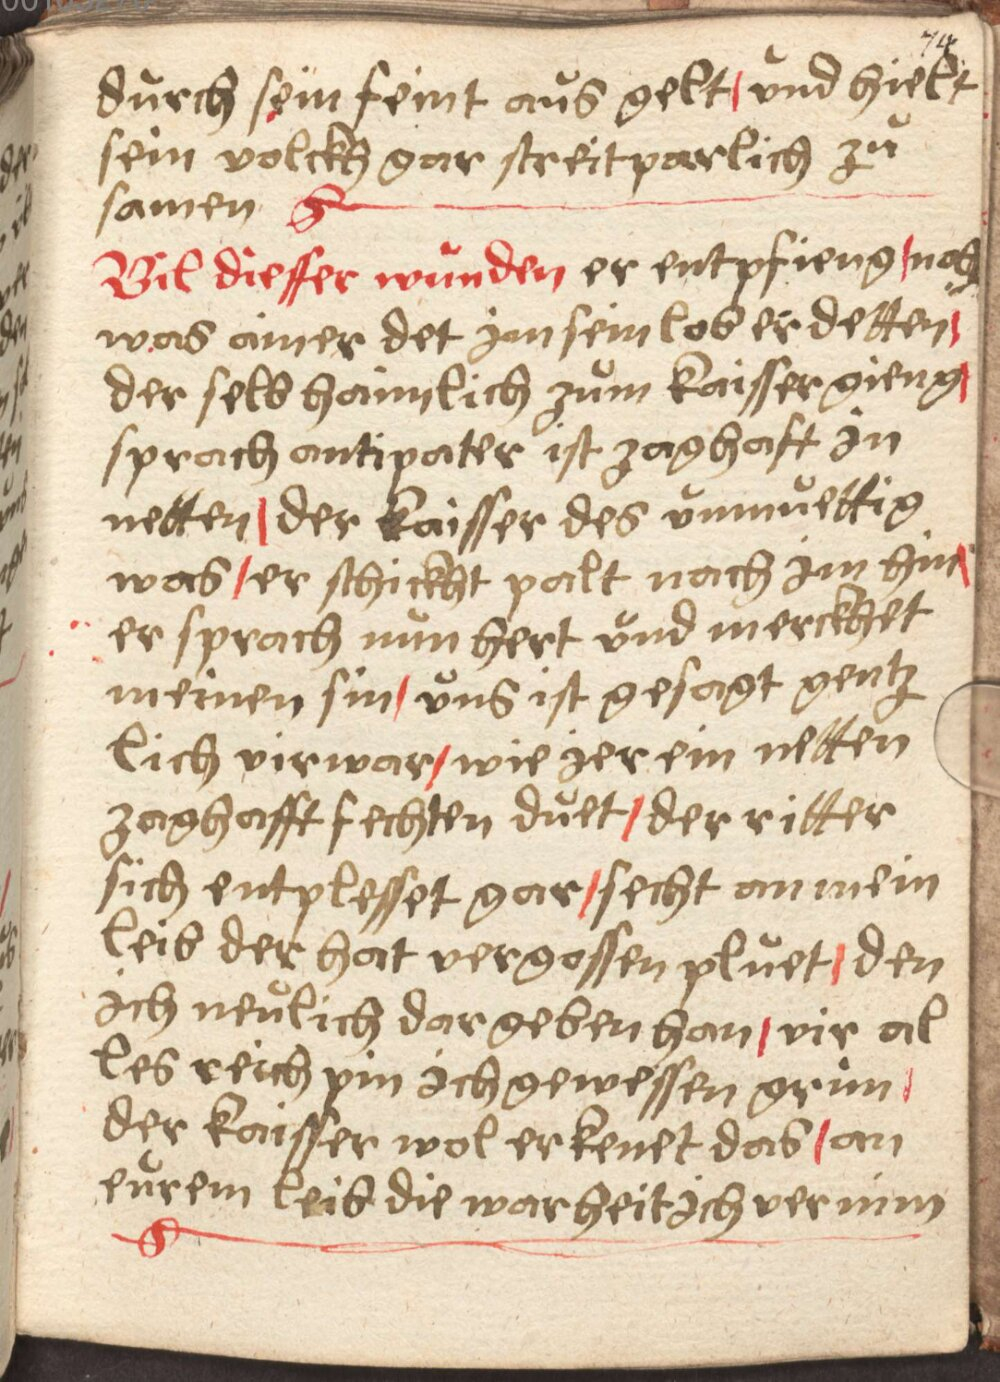 74
durch sein feint aus gelt / vnd hielt
sein volckh gar streitparlich zu
samen
Vil diesser wunden er entpfieng / noch
was ainer det im sein lob erdetten /
der selb haimlich zum kaisser gieng /
sprach antipater ist zaghaft in
netten / der kaisser des vnmuettig
was / er schickht palt nach im hin /
er sprach nun hert vnd merckhet
meinen sin / vns ist gesagt gentz
lich virwar / wie ier ein netten
zaghafft fechten duet / der ritter
sich entplesset gar / secht an mein
leib der hat vergossen pluet / den
ich neulich dar geben han / vir al
les reich pin ich gewessen grim /
der kaisser wol erkenet das / an
eurem leib die warheit ich vernim